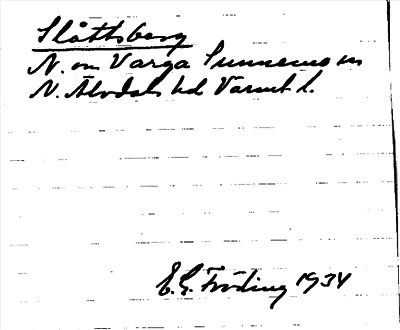 Slåttsberg
N. om Varga Sunnemo sn
N. Älvdals hd Värml. l.
E. G. Fröding 1934